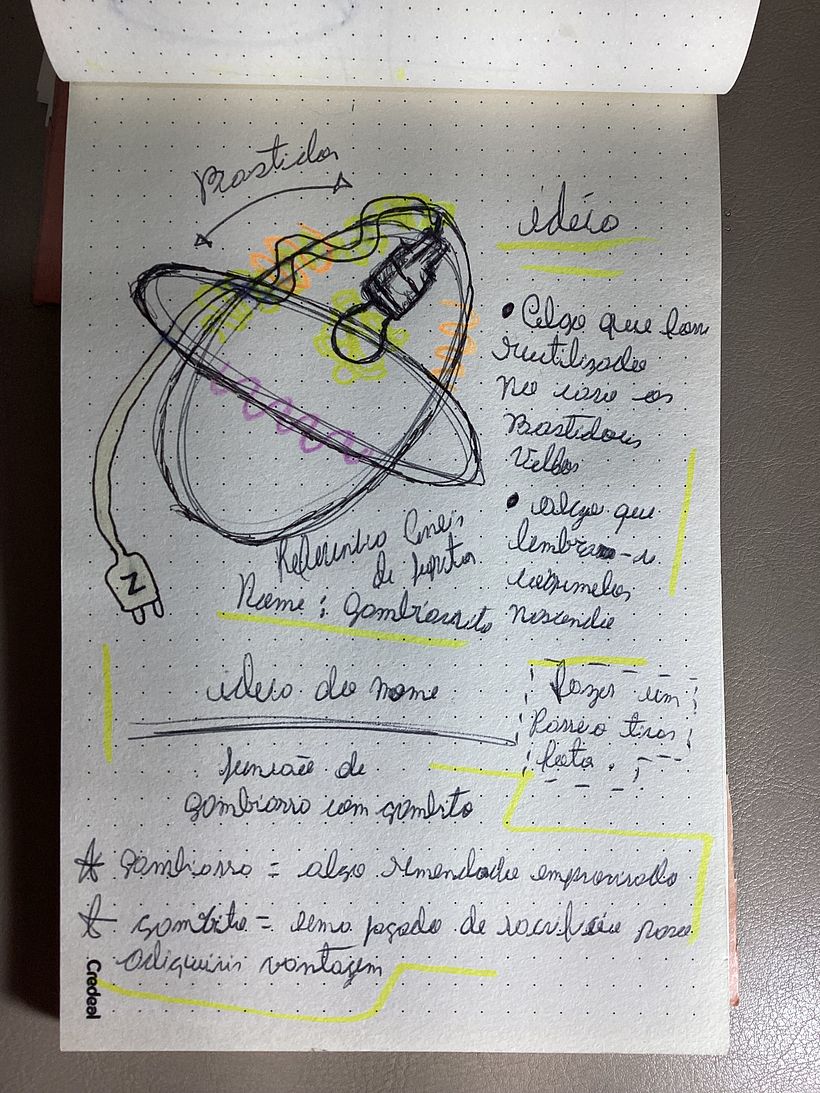 Bastidor
ideia
• Algo que
reutilizado
no caso os
Bastidores
Velhos
• algo que
lembra-se
nascendo
Referencia Aneis
de Jupiter
Nome : Gambiarrito
ideia do nome
fazer um
tirar
foto.
junção de
gambiarra com gambito
* Gambiarra = algo remendado emprovisado
* gambito = uma jogada de sacrificio para
adiquirir vantagem
N
Credeal